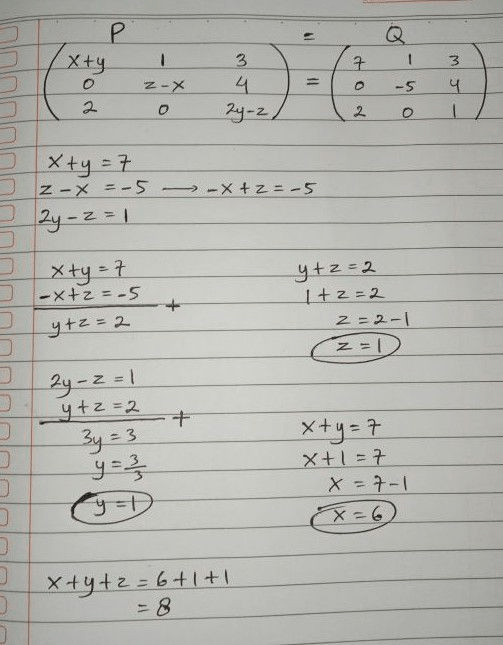 P = Q
x+y 1 3 7 1 3
0 z-x 4 = 0 -5 4
2 0 2y-z 2 0 1
x+y = 7
z-x = -5 → -x+z = -5
2y-z = 1
x+y = 7
-x+z = -5 +
y+z = 2
2y-z = 1
y+z = 2 +
3y = 3
y = 3/3
y = 1
y+z = 2
1+z = 2
z = 2-1
z = 1
x+y = 7
x+1 = 7
x = 7-1
x = 6
x+y+z = 6+1+1
= 8